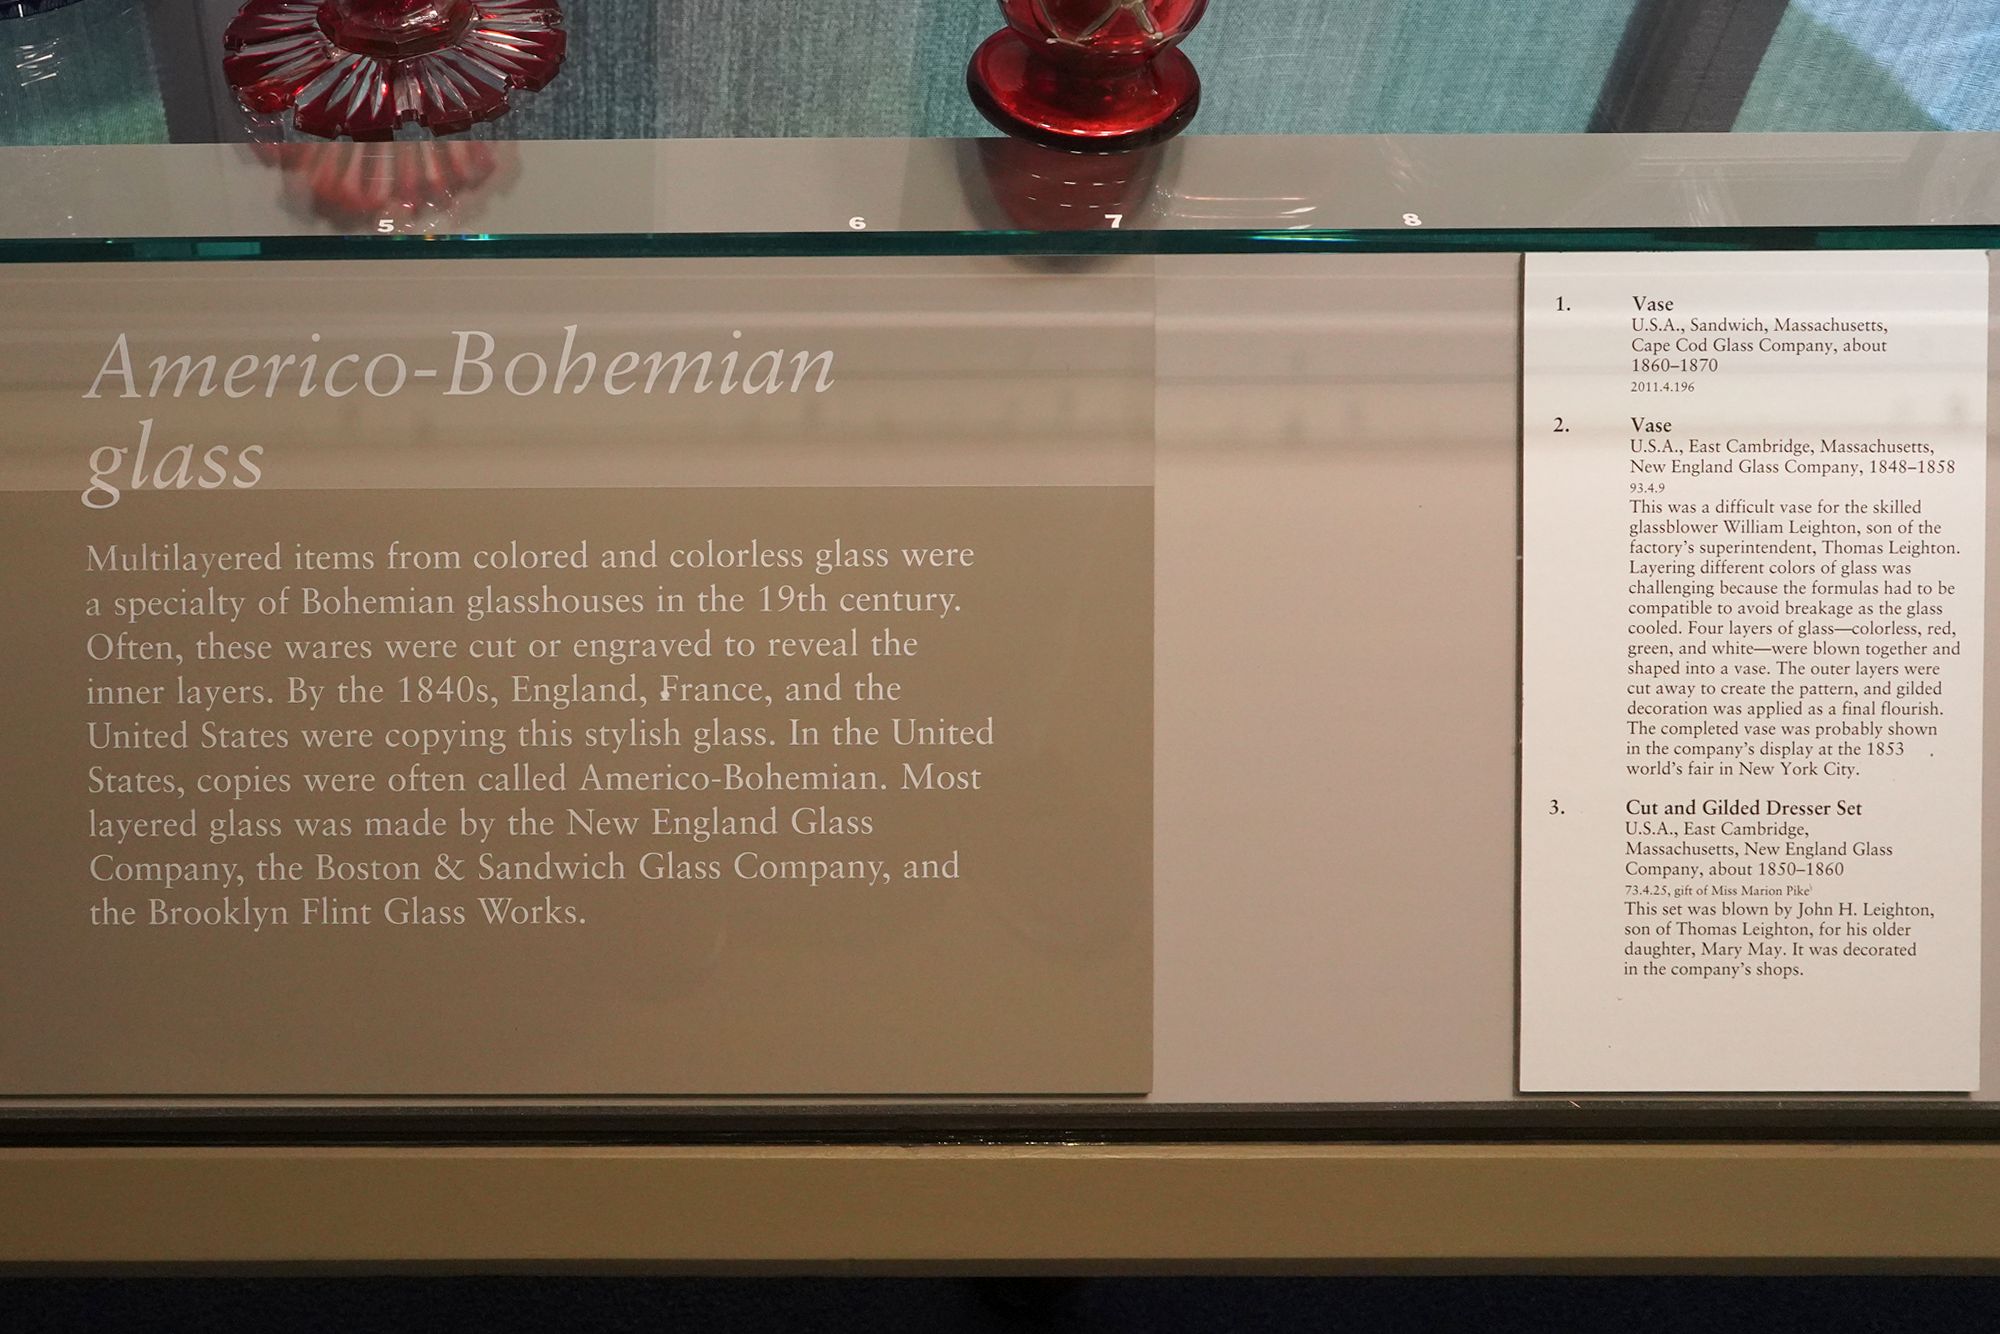 5 6 7 8
Americo-Bohemian
glass
Multilayered items from colored and colorless glass were
a specialty of Bohemian glasshouses in the 19th century.
Often, these wares were cut or engraved to reveal the
inner layers. By the 1840s, England, France, and the
United States were copying this stylish glass. In the United
States, copies were often called Americo-Bohemian. Most
layered glass was made by the New England Glass
Company, the Boston & Sandwich Glass Company, and
the Brooklyn Flint Glass Works.
1. Vase
U.S.A., Sandwich, Massachusetts,
Cape Cod Glass Company, about
1860–1870
2011.4.196
2. Vase
U.S.A., East Cambridge, Massachusetts,
New England Glass Company, 1848–1858
93.4.9
This was a difficult vase for the skilled
glassblower William Leighton, son of the
factory's superintendent, Thomas Leighton.
Layering different colors of glass was
challenging because the formulas had to be
compatible to avoid breakage as the glass
cooled. Four layers of glass—colorless, red,
green, and white—were blown together and
shaped into a vase. The outer layers were
cut away to create the pattern, and gilded
decoration was applied as a final flourish.
The completed vase was probably shown
in the company's display at the 1853
world's fair in New York City.
3. Cut and Gilded Dresser Set
U.S.A., East Cambridge,
Massachusetts, New England Glass
Company, about 1850–1860
73.4.25, gift of Miss Marion Pike
This set was blown by John H. Leighton,
son of Thomas Leighton, for his older
daughter, Mary May. It was decorated
in the company's shops.